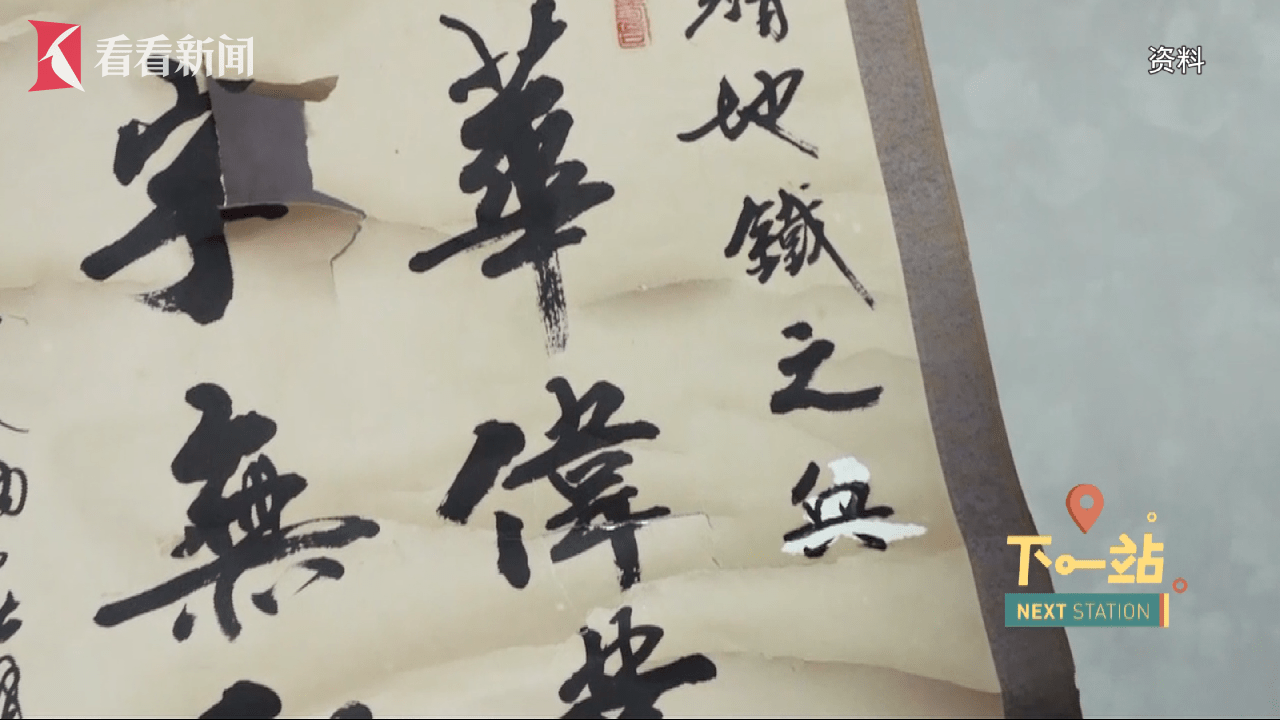 看看新闻
资料
地鐵之興
華偉
無
下一站
NEXT STATION